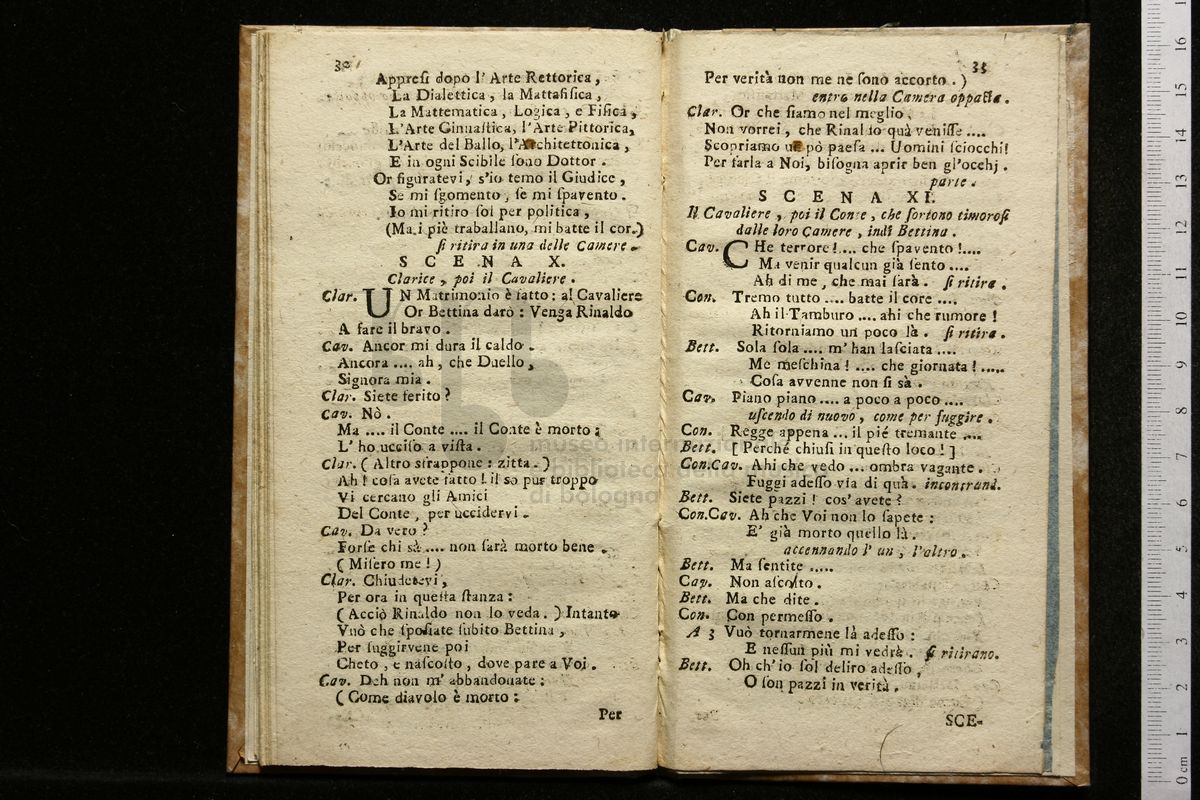 Appresi dopo l' Arte Rettorica,
La Dialettica, la Mattafisica,
La Mattematica, Logica, e Fisica,
L'Arte Ginnastica, l'Arte Pittorica,
L'Arte del Ballo, l'Architettonica,
E in ogni Scibile sono Dottor.
Or figuratevi, s'io temo il Giudice,
Se mi sgomento, se mi spavento.
Io mi ritiro sol per politica,
(Ma i piè traballano, mi batte il cor.)
si ritira in una delle Camere.
SCENA X.
Clarice, poi il Cavaliere.
Clar. UN Matrimonio è fatto: al Cavaliere
Or Bettina darò: Venga Rinaldo
A fare il bravo.
Cav. Ancor mi dura il caldo.
Ancora .... ah, che Duello,
Signora mia.
Clar. Siete ferito?
Cav. Nò.
Ma .... il Conte .... il Conte è morto;
L' ho ucciso a vista.
Clar. (Altro strappone: zitta.)
Ah! cosa avete fatto! il so pur troppo
Vi cercano gli Amici
Del Conte, per uccidervi.
Cav. Da vero?
Forse chi sà .... non sarà morto bene.
(Misero me!)
Clar. Chiudetevi,
Per ora in questa stanza:
(Acciò Rinaldo non lo veda.) Intanto
Vuò che sposiate subito Bettina,
Per fuggirvene poi
Cheto, e nascosto, dove pare a Voi.
Cav. Deh non m' abbandonate:
(Come diavolo è morto:
Per
33
Per verità non me ne sono accorto.)
entra nella Camera oppasta.
Clar. Or che siamo nel meglio,
Non vorrei, che Rinaldo quà venisse ....
Scopriamo un pò paesa ... Uomini sciocchi!
Per farla a Noi, bisogna aprir ben gl'occhj.
parte.
SCENA XI.
Il Cavaliere, poi il Conte, che sortono timorosi
dalle loro Camere, indi Bettina.
Cav. CHe terrore!... che spavento!....
Ma venir qualcun già sento ....
Ah di me, che mai sarà. si ritira.
Con. Tremo tutto .... batte il core ....
Ah il Tamburo .... ahi che rumore!
Ritorniamo un poco là. si ritira.
Bett. Sola sola .... m' han lasciata ....
Me meschina! .... che giornata! .....
Cosa avvenne non si sà.
Cav. Piano piano .... a poco a poco ....
uscendo di nuovo, come per fuggire.
Con. Regge appena ... il pié tremante ....
Bett. [Perchè chiusi in questo loco!]
Con.Cav. Ahi che vedo ... ombra vagante.
Fuggi adesso via di quà. incontrand.
Bett. Siete pazzi! cos' avete?
Con.Cav. Ah che Voi non lo sapete:
E' già morto quello là.
accennando l' un, l'altro.
Bett. Ma sentite .....
Cav. Non ascolto.
Bett. Ma che dite.
Con. Con permesso.
A 3 Vuò tornarmene là adesso:
E nessun più mi vedrà. si ritirano.
Bett. Oh ch'io sol deliro adesso,
O son pazzi in verità.
SCE-
museo internazionale
biblioteca della musica
di bologna
0 cm 1 2 3 4 5 6 7 8 9 10 11 12 13 14 15 16